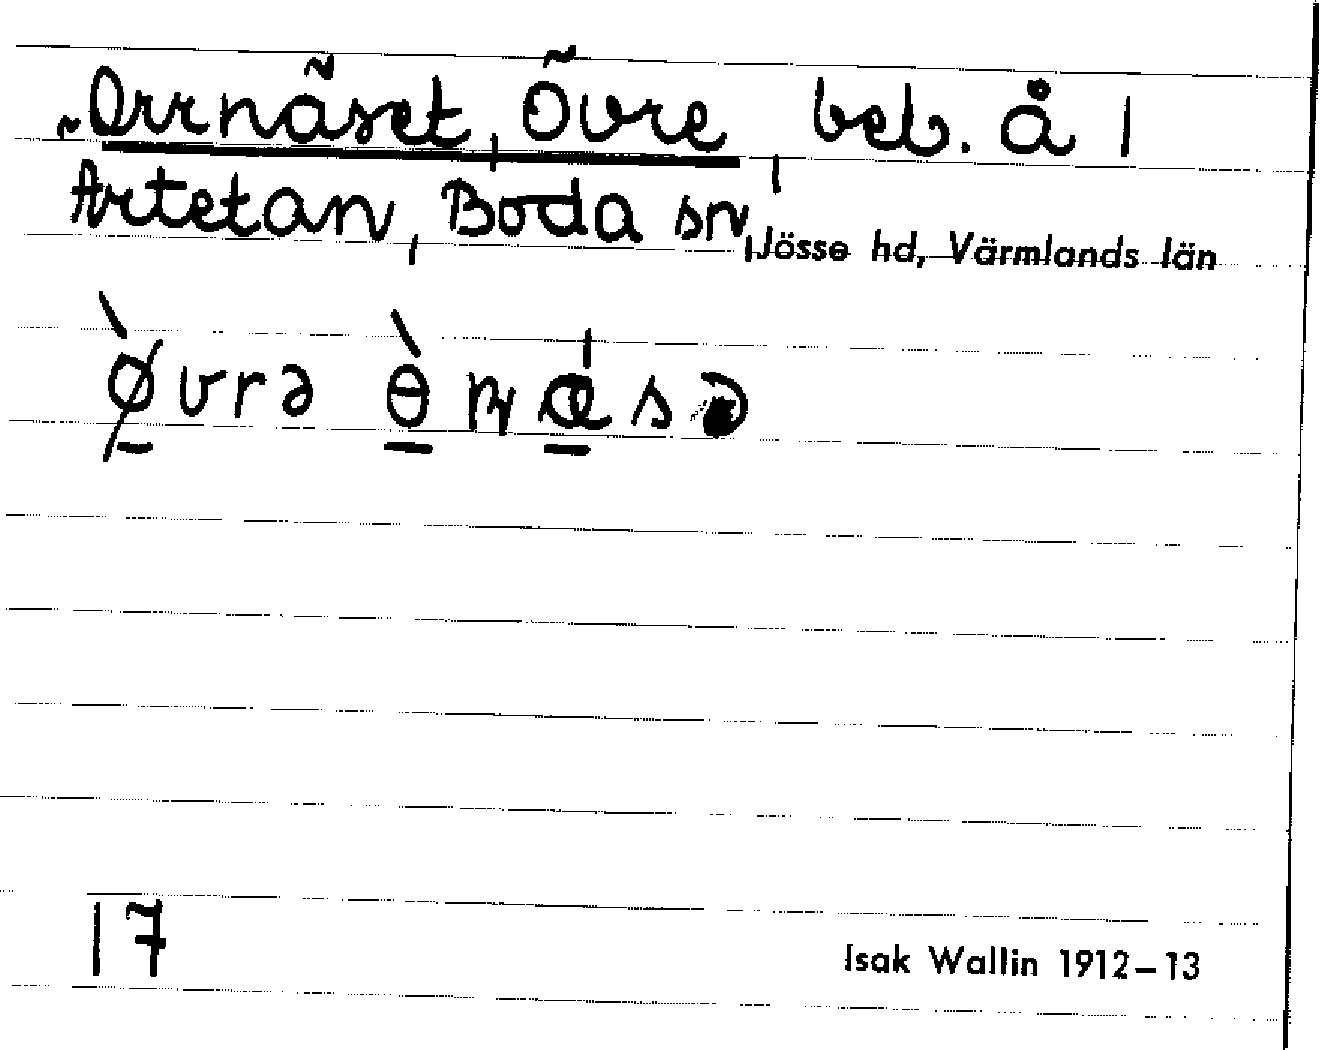 Orrnäset, Övre, beb. å 1
Artetan, Boda sn, Jösse hd, Värmlands län
ø̀vrə ɵ̀nǽsə
17
Isak Wallin 1912–13